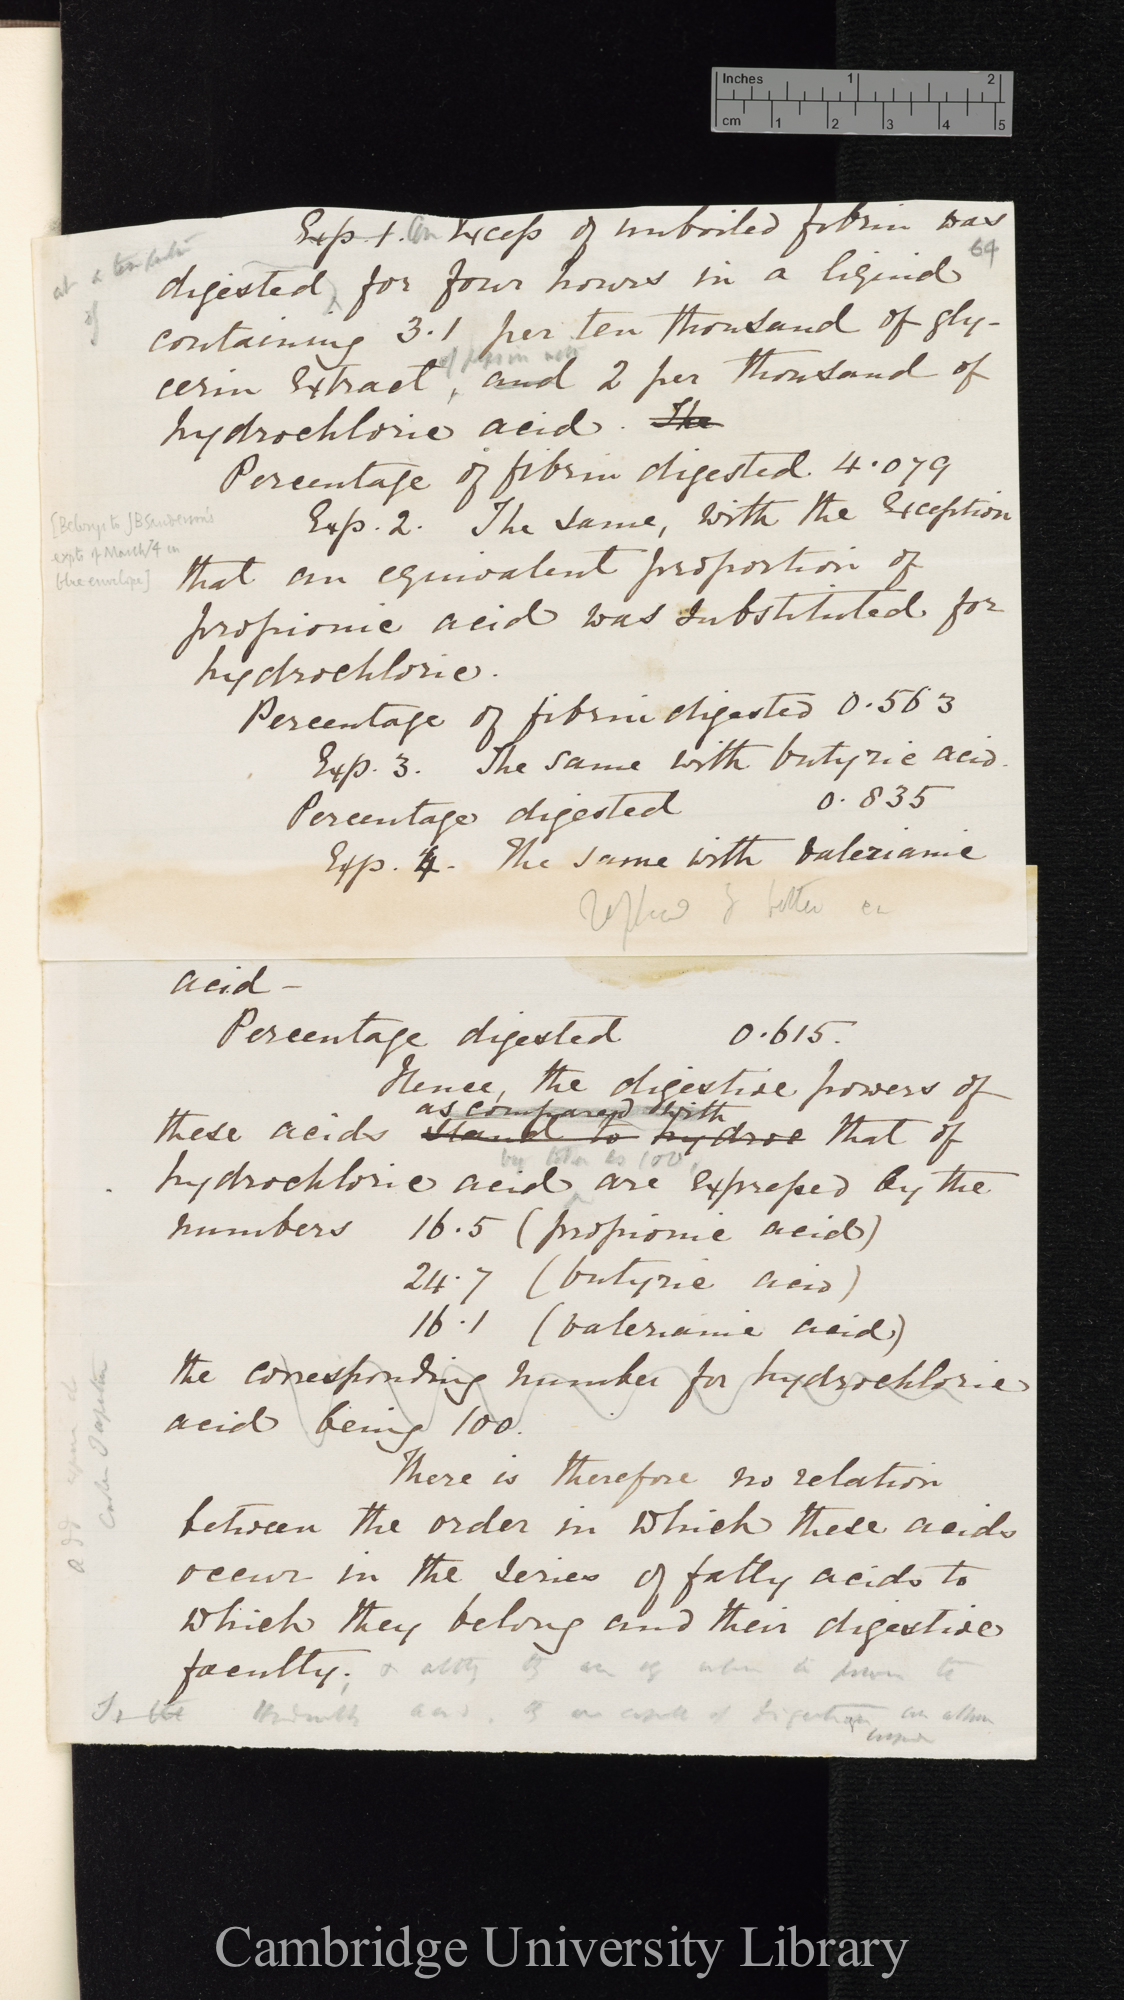 Inches 1 2
cm 1 2 3 4 5
Exp. 1. An Excess of unboiled fibrin was
64
at a
of
digested, for four hours in a liquid
containing 3.1 per ten thousand of gly-
cerin Extract, and 2 per thousand of
hydrochloric acid. The
Percentage of fibrin digested. 4.079
Exp. 2. The same, with the Exception
[Belongs to JBSanderson's
expts of March 74 in
blue envelope]
that an equivalent proportion of
propionic acid was substituted for
hydrochloric.
Percentage of fibrin digested 0.563
Exp. 3. The same with butyric acid.
Percentage digested 0.835
Exp. 4. The same with valerianic
acid –
Percentage digested 0.615.
Hence, the digestive powers of
as compared with
these acids stand to hydroc that of
hydrochloric acid are Expressed by the
numbers 16.5 (propionic acid)
24.7 (butyric acid)
16.1 (valerianic acid)
the corresponding number for hydrochloric
acid being 100.
There is therefore no relation
between the order in which these acids
occur in the series of fatty acids to
which they belong and their digestive
faculty.
Cambridge University Library